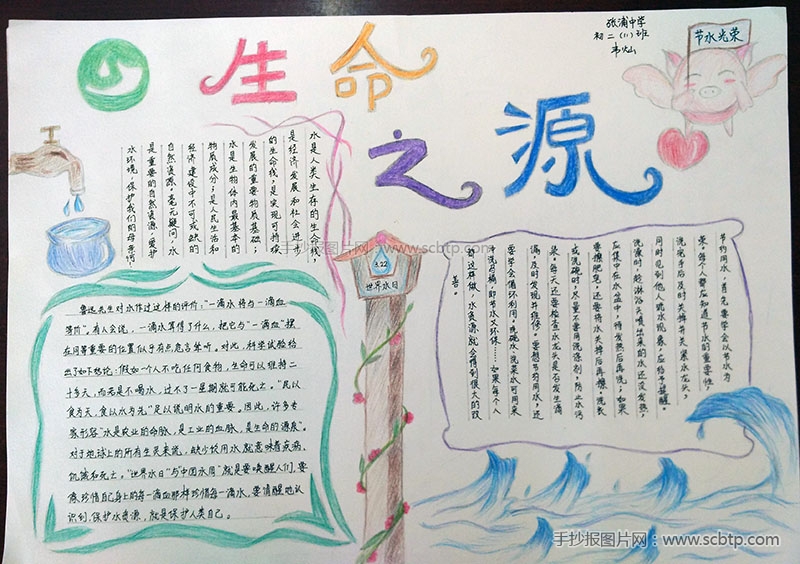 生命之源
张浦中学
初二(11)班
节水光荣
水是人类生存的生命线，
是经济发展和社会进步
的生命线，是实现可持续
发展的重要物质基础；
水是生物体内最基本的
物质成分；是人民生活和
经济建设中不可或缺的
自然资源。毫无疑问，水
是重要的自然资源，爱护
水环境，保护我们的母亲河。
3.22
世界水日
鲁迅先生对水作过这样的评价："一滴水将与一滴血
等价"。有人会说，一滴水算得了什么，把它与"一滴血"摆
在同等重要的位置似乎有点危言耸听。对此，科学试验给
出了如下结论：假如一个人不吃任何食物，生命可以维持二
十多天，而若是不喝水，过不了一星期就可能死之。"民以
食为天，食以水为先"足以说明水的重要。因此，许多专
家形容"水是农业的命脉，是工业的血脉，是生命的源泉"。
对于地球上的所有生灵来说，缺少饮用水就意味着疾病、
饥荒和死亡。"世界水日"与"中国水周"就是要唤醒人们，要
像珍惜自身上的每一滴血那样珍惜每一滴水，要清醒地认
识到，保护水资源，就是保护人类自己。
节约用水，首先要学会以节水为
荣，每个人都应知道节水的重要性，
洗完手后及时关掉并关紧水龙头，
同时见到他人跑水现象，应给予提醒。
洗澡时，趁淋浴头喷出来的水还没发热，
应集中在水盆中，待发热后再洗；如果
要擦肥皂，还要将水关掉后再擦。洗衣
或洗碗时，尽量不要用洗涤剂，防止水污
染。每天还要检查水龙头是否发生滴
漏，及时发现并维修。要想节约用水，还
要学会循环利用。洗碗水、洗菜水可用来
冲洗马桶，即节水又环保……如果每个人
都这样做，水资源就会得到很大的改
善。
手抄报图片网：www.scbtp.com
手抄报图片网：www.scbtp.com